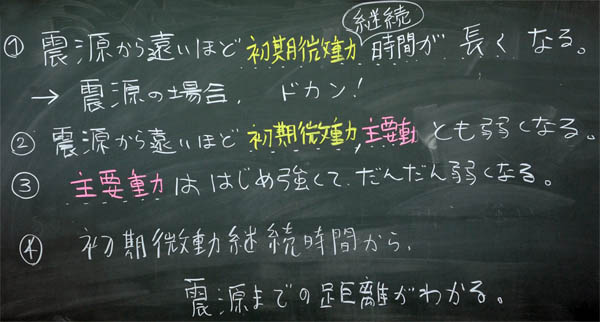 継続
① 震源から遠いほど初期微動時間が長くなる。
→ 震源の場合、ドカン!
② 震源から遠いほど初期微動,主要動とも弱くなる。
③ 主要動ははじめ強くて、だんだん弱くなる。
④ 初期微動継続時間から、
震源までの距離がわかる。